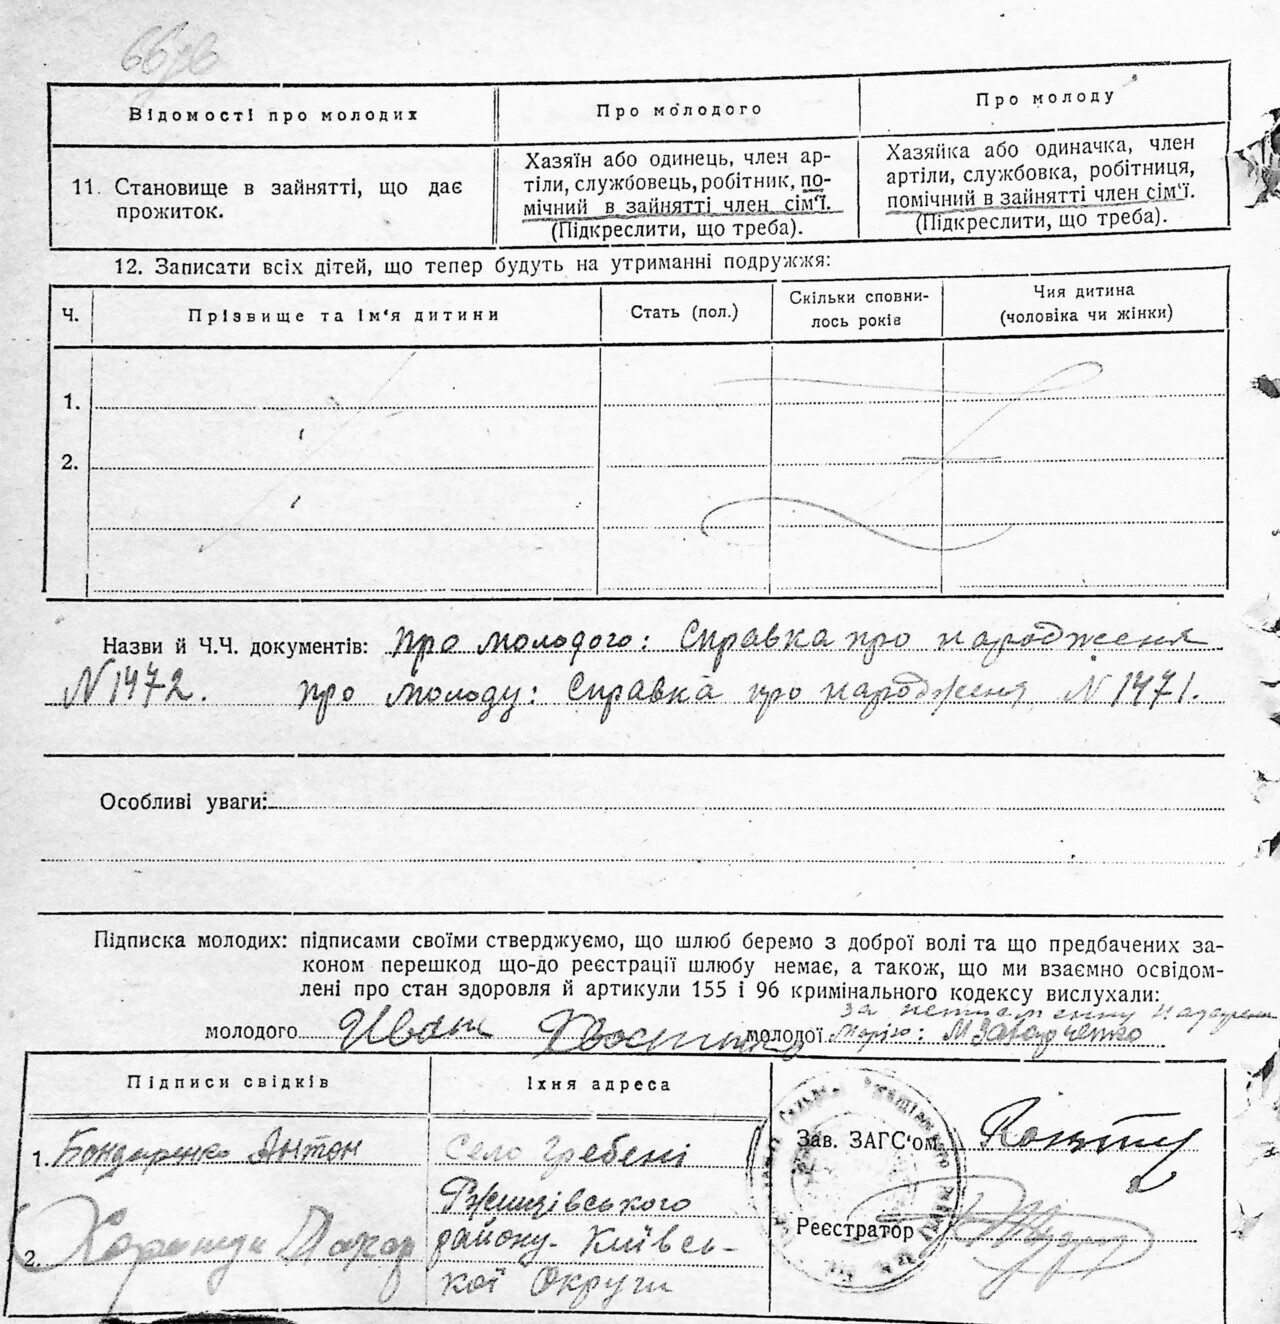 Відомості про молодих
Про молодого
Про молоду
11. Становище в зайнятті, що дає
прожиток.
Хазяїн або одинець, член ар-
тіли, службовець, робітник, по-
мічний в зайнятті член сім'ї.
(Підкреслити, що треба).
Хазяйка або одиначка, член
артіли, службовка, робітниця,
помічний в зайнятті член сім'ї.
(Підкреслити, що треба).
12. Записати всіх дітей, що тепер будуть на утриманні подружжя:
Ч.
Прізвище та ім'я дитини
Стать (пол.)
Скільки сповни-
лось років
Чия дитина
(чоловіка чи жінки)
1.
2.
Назви й Ч.Ч. документів: про молодого: Справка про народженя
N 1472. про молоду: Справка про народженя N 1471.
Особливі уваги:
Підписка молодих: підписами своїми стверджуємо, що шлюб беремо з доброї волі та що предбачених за-
коном перешкод що-до реєстрації шлюбу немає, а також, що ми взаємно освідом-
лені про стан здоровля й артикули 155 і 96 кримінального кодексу вислухали:
молодого Иван
молодої Марію:
Підписи свідків
Їхня адреса
1. Бондаренко Антон
Село Гребені
Ржищівського
району Київсь-
кої Округи
2.
Зав. ЗАГС'ом
Реєстратор